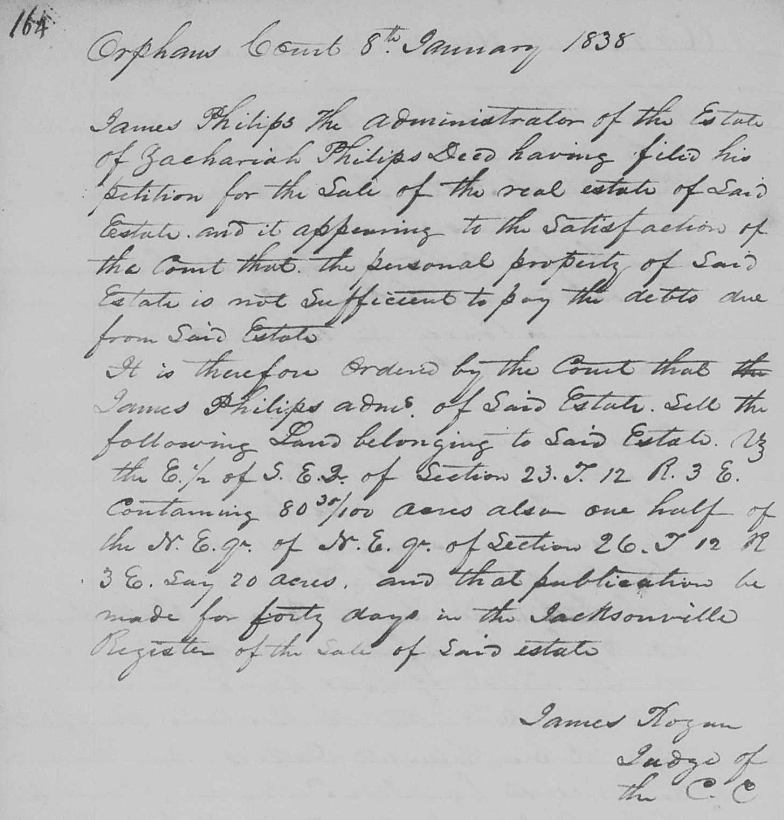 164
Orphans Court 8th January 1838
James Philips the administrator of the Estate
of Zachariah Philips Decd having filed his
petition for the Sale of the real estate of Said
Estate. and it appearing to the Satisfaction of
the Court that. the personal property of Said
Estate is not Sufficient to pay the debts due
from Said Estate
It is therefore Ordered by the Court that the
James Philips admr. of Said Estate. Sell the
following Land belonging to Said Estate. Viz
the E. 1/2 of S. E. Q. of Section 23. T. 12 R. 3 E.
Containing 80 30/100 acres also one half of
the N. E. qr. of N. E. qr. of Section 26. T 12 R
3 E. Say 20 acres. and that publication be
made for forty days in the Jacksonville
Register of the Sale of Said estate
James Hogan
Judge of
the C. C